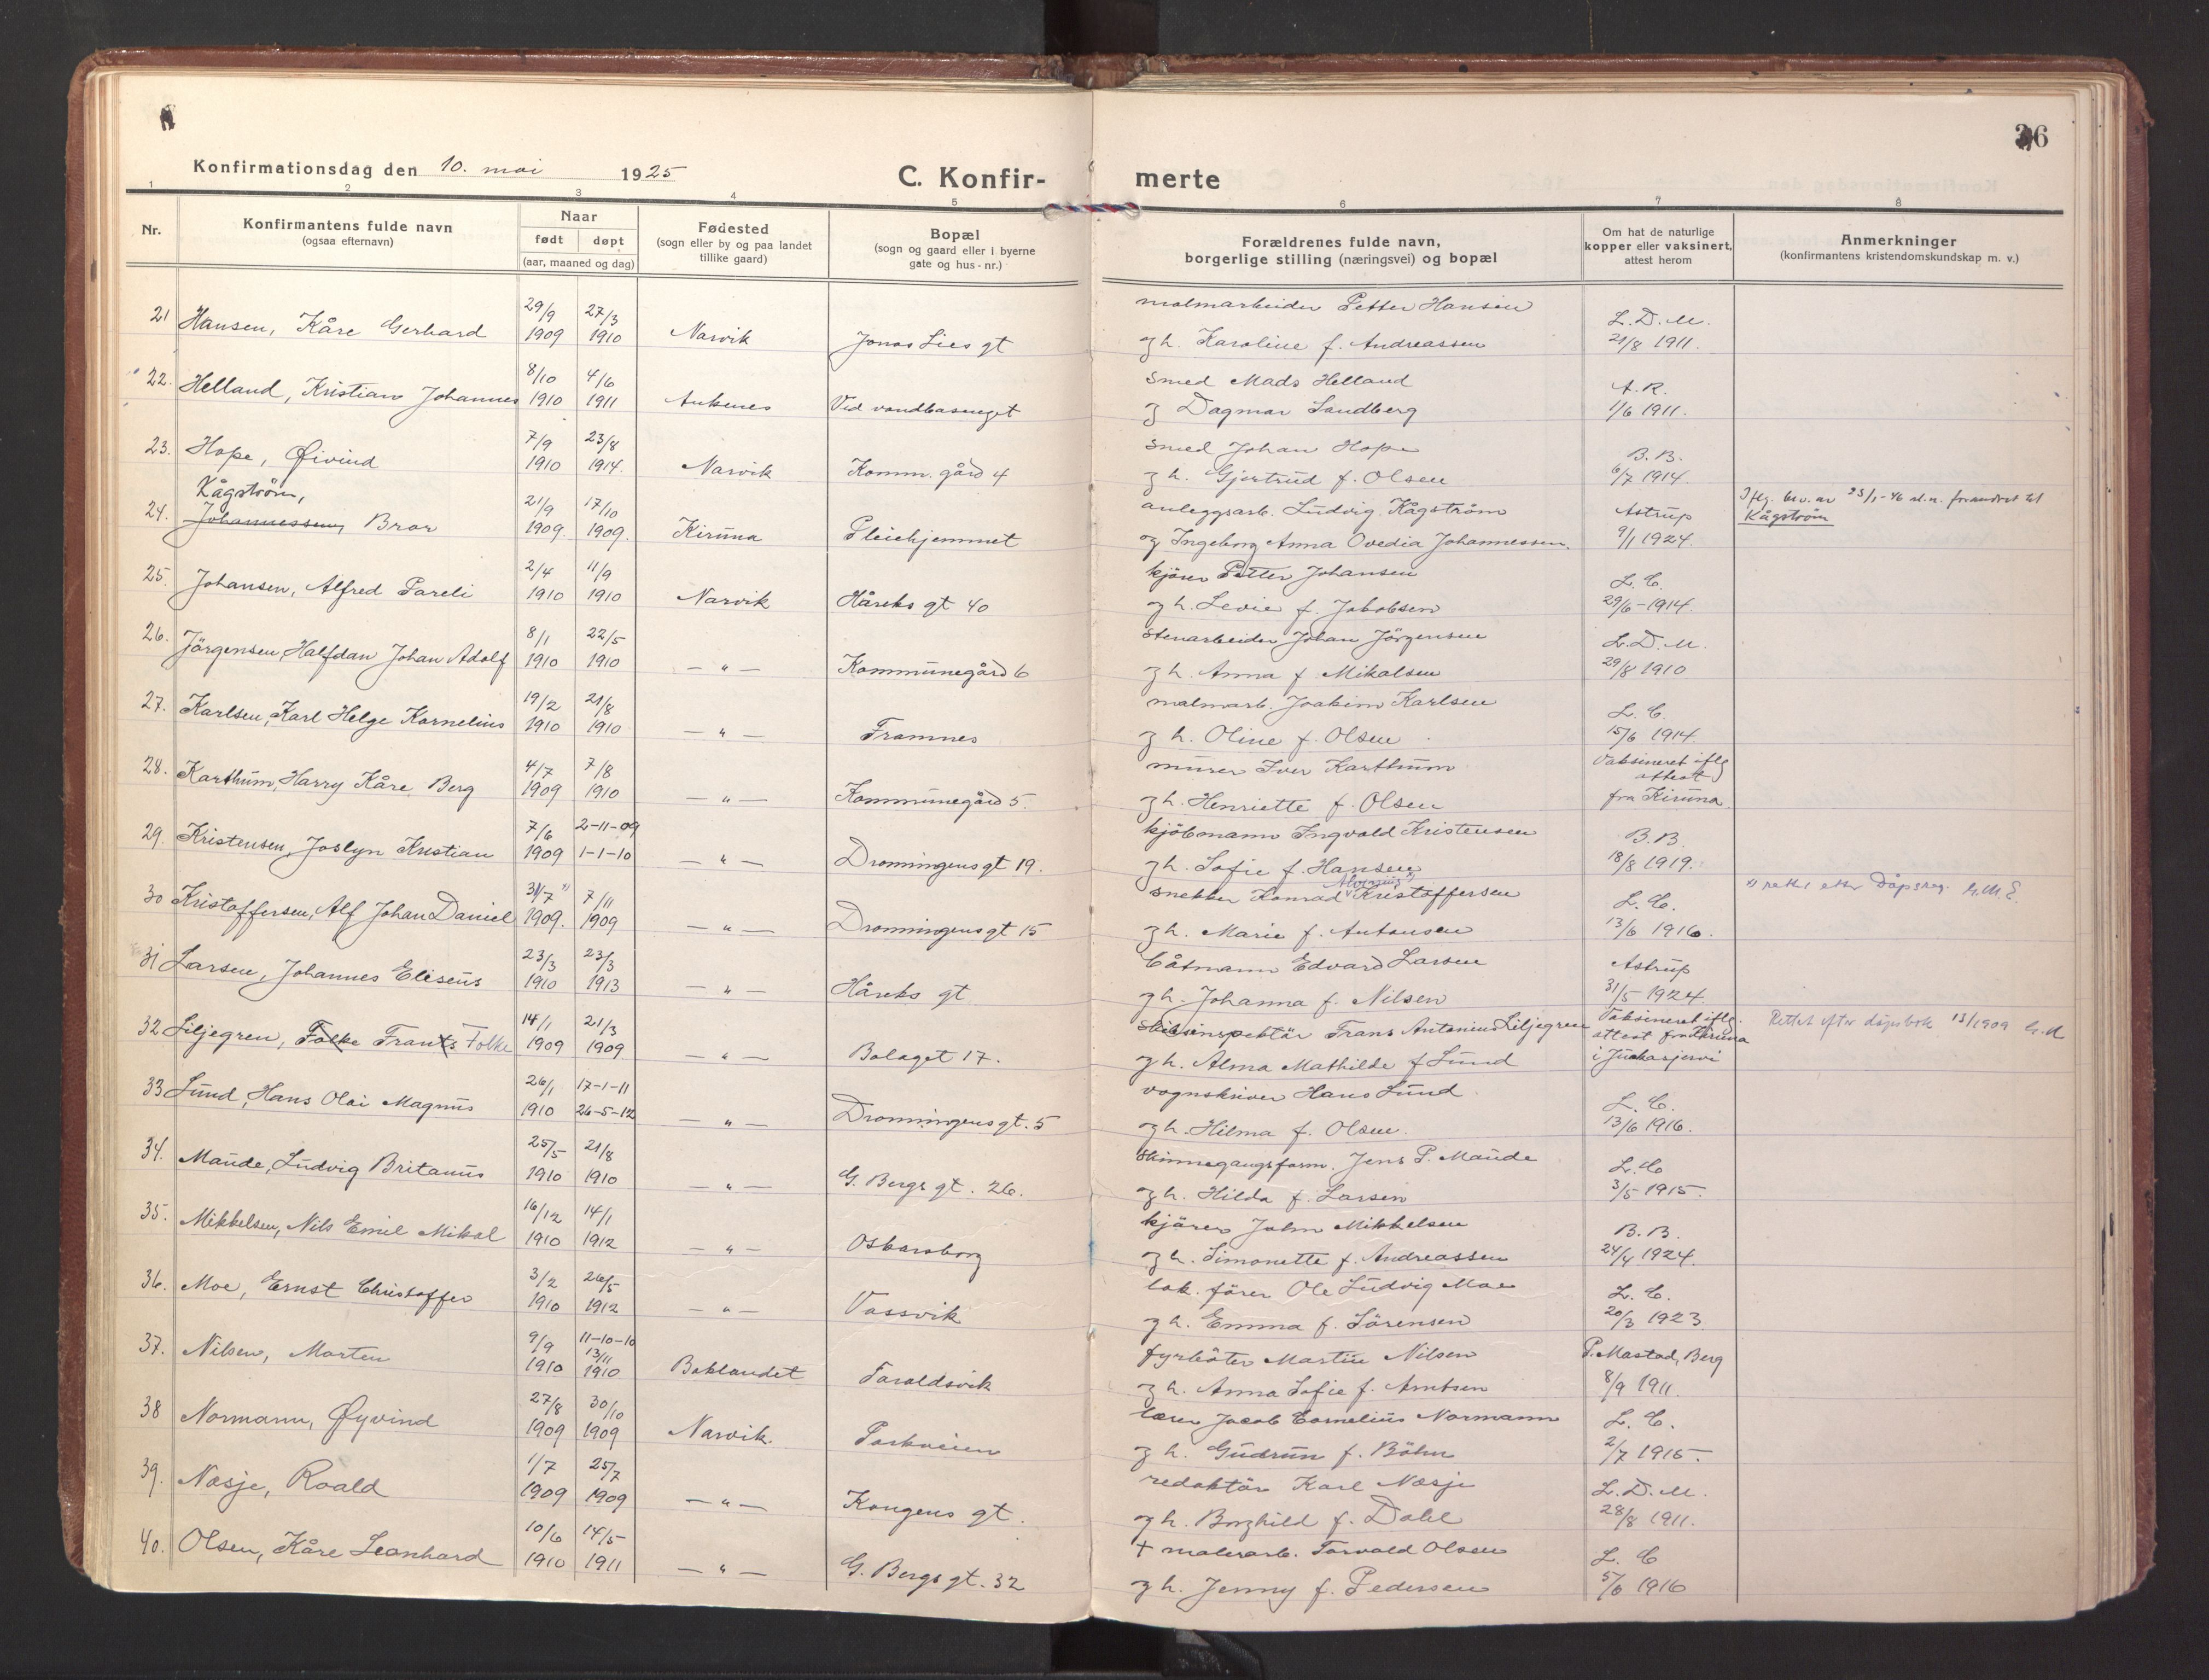 36
Konfirmationsdag den 10. mai 1925
C. Konfir-
merte
1 2 3 4 5 6 7 8
Nr.
Konfirmantens fulde navn
(ogsaa efternavn)
Naar
født døpt
(aar, maaned og dag)
Fødested
(sogn eller by og paa landet
tillike gaard)
Bopæl
(sogn og gaard eller i byerne
gate og hus-nr.)
Forældrenes fulde navn,
borgerlige stilling (næringsvei) og bopæl
Om hat de naturlige
kopper eller vaksinert,
attest herom
Anmerkninger
(konfirmantens kristendomskundskap m. v.)
21 Hansen, Kåre Gerhard 29/9 1909 27/3 1910 Narvik Jonas Lies gt
malmarbeider Petter Hansen
og h. Karoline f. Andreassen
L.D.M.
21/8 1911.
22. Helland, Kristian Johannes 8/10 1910 4/6 1911 Ankenes Ved vandbasenget
Smed Mads Helland
og Dagmar Sandberg
A.R.
1/6 1911.
23. Hope, Øivind 7/9 1910 23/8 1914. Narvik Komm. gård 4
Smed Johan Hope
og h. Gjertrud f. Olsen
B.B.
6/7 1914.
Kågström,
24. Johannessen, Bror 21/9 1909. 17/10 1909. Kiruna Pleiehjemmet
anleggsarb. Ludvig Kågström
og Ingeborg Anna Ovedia Johannessen.
Astrup
9/1 1924.
Iflg. bev. av 23/1-46 sl.n. forandret til
Kågström
25. Johansen, Alfred Pareli 2/4 1910 11/9 1910 Narvik Håreks gt 40
kjører Petter Johansen
og h. Levie f. Jakobsen
L.C.
29/6-1914.
26. Jörgensen, Halfdan Johan Adolf 8/1 1910 22/5 1910 — " — Kommunegård 6
Stenarbeider Johan Jörgensen
og h. Anna f. Mikalsen
L.D.M.
29/8 1910
27. Karlsen, Karl Helge Kornelius 19/2 1910 21/8 1910 — " — Framnes
malmarb. Joakim Karlsen
og h. Oline f. Olsen
L.C.
15/6 1914.
28. Karthum, Harry Kåre Berg 4/7 1909 7/8 1910 — " — Kommunegård 5.
murer Iver Karthum
og h. Henriette f. Olsen
Vaksineret iflg
attest
fra Kiruna.
29. Kristensen, Joslyn Kristian 7/6 1909 2-11-09 1-1-10 — " — Dronningensgt 19.
kjöbmann Ingvald Kristensen
og h. Sofie f. Hansen
B.B.
18/8 1919.
30 Kristoffersen, Alf Johan Daniel 31/7 1909. 7/11 1909 — " — Dronningensgt 15
snekker Konrad Kristoffersen
og h. Marie f. Antonsen
L.C.
13/6 1916.
rettet etter Dåpsreg. G.M.E.
31 Larsen, Johannes Eliseus 23/3 1910 23/3 1913 — " — Håreks gt
båtmann Edvard Larsen
og h. Johanna f. Nilsen
Astrup
31/5 1924.
32 Liljegren, Folke Frants Folke 14/1 1909 21/3 1909 — " — Bolaget 17.
Skibsinspektør Frans Antonius Liljegren
og h. Alma Mathilde f Lund
Vaksineret iflg.
attest fra Kiruna
i Juckasjervi
Rettet efter dåpsbok 13/1909 G.M
33 Lund, Hans Olai Magnus 26/1 1910 17-1-11 26-5-12 — " — Dronningensgt. 5
vognskriver Hans Lund
og h. Hilma f. Olsen.
L.C.
13/6 1916.
34. Maude, Ludvig Britanus 25/5 1910 21/8 1910 — " — G. Bergs gt. 26.
Skinnegangsform. Jens P. Maude
og h. Hilda f. Larsen
L.C
3/5 1915.
35. Mikkelsen, Nils Emil Mikal 16/12 1910 14/1 1912 — " — Oskarsborg
kjörer John Mikkelsen
og h. Simonette f. Andreassen
B.B.
24/4 1924.
36. Moe, Ernst Christoffer 3/2 1910 26/5 1912 — " — Vassvik
lok. förer Ole Ludvig Moe
og h. Emma f. Sörensen
L.C.
20/3 1923
37. Nilsen, Morten 9/9 1910 11-10-10 13/11 1910 Baklandet Taraldsvik
fyrböter Martin Nilsen
og h. Anna Sofie f. Arntsen
P. Mastad, Berg
8/9 1911.
38 Normann, Øyvind 27/8 1909 30/10 1909 Narvik. Parkveien
lærer Jacob Cornelius Normann
og h. Gudrun f. Böhn
L.C.
2/7 1915.
39. Næsje, Roald 1/7 1909 25/7 1909 — " — Kongens gt.
redaktör Karl Næsje
og h. Borghild f. Dahl
L.D.M.
28/8 1911.
40. Olsen, Kåre Leonhard 10/6 1910 14/5 1911 — " — G. Bergs gt. 32
+ malerarb. Torvald Olsen
og h. Jenny f. Pedersen
L.C
5/6 1916